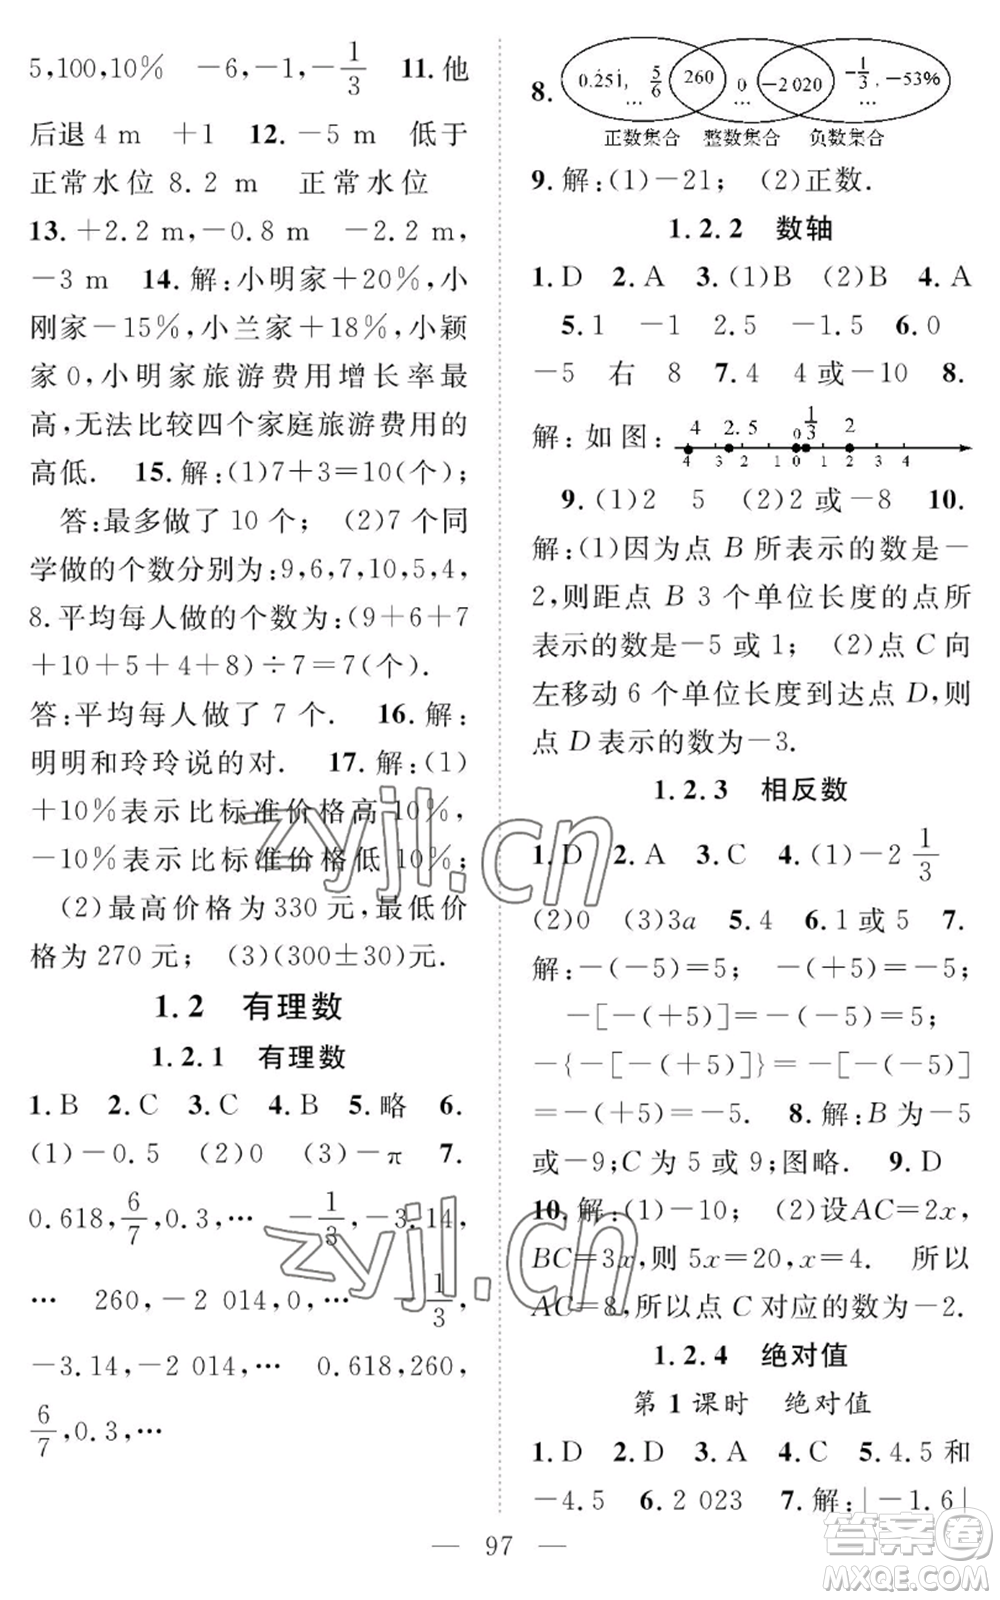 5,100,10% －6,－1,－1/3 11.他
后退 4 m ＋1 12.－5 m 低于
正常水位 8.2 m 正常水位
13.＋2.2 m,－0.8 m －2.2 m,
－3 m 14.解:小明家＋20%,小
刚家－15%,小兰家＋18%,小颖
家 0,小明家旅游费用增长率最
高,无法比较四个家庭旅游费用的
高低. 15.解:(1)7＋3＝10(个);
答:最多做了 10 个; (2)7 个同
学做的个数分别为:9,6,7,10,5,4,
8.平均每人做的个数为:(9＋6＋7
＋10＋5＋4＋8)÷7＝7(个).
答:平均每人做了 7 个. 16.解:
明明和玲玲说的对. 17.解:(1)
＋10%表示比标准价格高 10%,
－10%表示比标准价格低 10%;
(2)最高价格为 330 元,最低价
格为 270 元; (3)(300±30)元.
1.2 有理数
1.2.1 有理数
1.B 2.C 3.C 4.B 5.略 6.
(1)－0.5 (2)0 (3)－π 7.
0.618,6/7,0.3,… －1/3,－3.14,
… 260,－2 014,0,… －1/3,
－3.14,－2 014,… 0.618,260,
6/7,0.3,…
8. 0.2̇51̇, 5/6 … 260 0 … －2 020 －1/3,－53% …
正数集合 整数集合 负数集合
9.解:(1)－21; (2)正数.
1.2.2 数轴
1.D 2.A 3.(1)B (2)B 4.A
5.1 －1 2.5 －1.5 6.0
－5 右 8 7.4 4 或－10 8.
解:如图: 4 2.5 0 1/3 2
4 2 1 0 1 2 3 4
9.(1)2 5 (2)2 或－8 10.
解:(1)因为点 B 所表示的数是－
2,则距点 B 3 个单位长度的点所
表示的数是－5 或 1; (2)点 C 向
左移动 6 个单位长度到达点 D,则
点 D 表示的数为－3.
1.2.3 相反数
1.D 2.A 3.C 4.(1)－2 1/3
(2)0 (3)3a 5.4 6.1 或 5 7.
解:－(－5)＝5; －(＋5)＝－5;
－[－(＋5)]＝－(－5)＝5;
－{－[－(＋5)]}＝－[－(－5)]
＝－(＋5)＝－5. 8.解:B 为－5
或－9;C 为 5 或 9;图略. 9.D
10.解:(1)－10; (2)设 AC＝2x,
BC＝3x,则 5x＝20,x＝4. 所以
AC＝8,所以点 C 对应的数为－2.
1.2.4 绝对值
第 1 课时 绝对值
1.D 2.D 3.A 4.C 5.4.5 和
－4.5 6.2 023 7.解:|－1.6|
97
zyjl.cn
zyjl.cn
答案圈
MXQE.COM